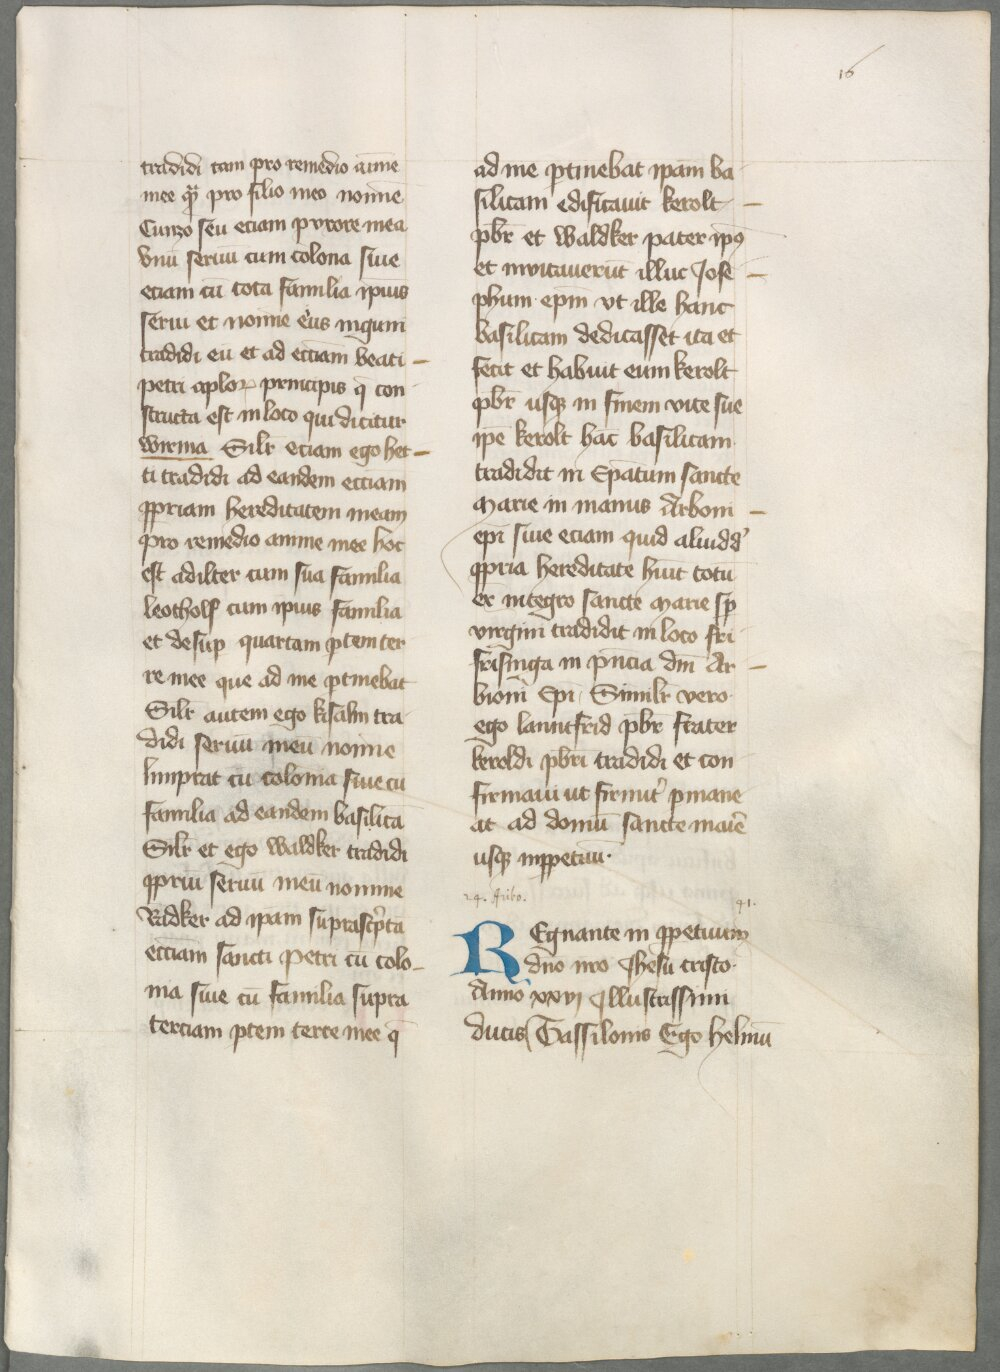 16
tradidi tam pro remedio aīme
mee q̄ pro filio meo nomīe
Cunzo seu eciam p vxore mea
Vnū seruū cum colona siue
eciam cū tota familia ipius
serui et nomīe eius inguni
tradidi eū et ad ecc̄iam beati
petri aplor principis q̄ con
structa est in loco qui dicitur
wirma Silr̄ eciam ego het
ti tradidi ad eandem ecc̄iam
ppriam hereditatem meam
pro remedio anime mee hoc
est adilter cum sua familia
leotholf cum ipius familia
et desup quartam ptem ter
re mee que ad me ptinebat
Silr̄ autem ego kisalm tra
didi seruū meū nomīe
limprat cū colonia siue cū
familia ad eandem basilicā
Silr̄ et ego waldker tradidi
ppriū seruū meū nomine
Radker ad ipam suprascpta
ecc̄iam sancti Petri cū colo
nia siue cū familia supra
terciam ptem terre mee q̄
ad me ptinebat ipam ba
silicam edificauit kerolt
pbr̄ et waldker pater ipi9
et inuitauerūt illuc Jose
phum ep̄m vt ille hanc
basilicam dedicasset ita et
fecit et habuit eum kerolt
pbr̄ usq in finem vite sue
ipe kerolt hāc basilicam
tradidit in Ep̄atum sancte
Marie in manus Arboni
ep̄i siue eciam quid aliud d'
ppria hereditate huit totū
ex integro sancte Marie sp̄
virgini tradidit in loco fri
frisinga in pn̄cia dn̄i Ar
bioni Ep̄i Similr̄ vero
ego lantfrid pbr̄ frater
keroldi pbr̄i tradidi et con
firmaui ut firmit' pmane
at ad domū sancte marie
usq inppetuū
24. Aribo. 41.
REgnante in ppetuum
dn̄o nr̄o Jhesu cristo
Anno xxvj Jllustrissimi
ducis Tassilonis Ego helmū